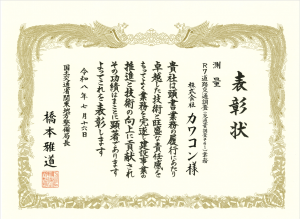 表彰状
測量
R7道路交通調査
株式会社 カワコン 様
貴社は頭書業務の履行にあたり
卓越した技術と旺盛な責任感を
もってよく業務を完遂し建設事業の
推進と技術の向上に貢献され
その功績はまことに顕著であります
よってこれを表彰します
令和八年七月十六日
国土交通省関東地方整備局長
橋本雅道